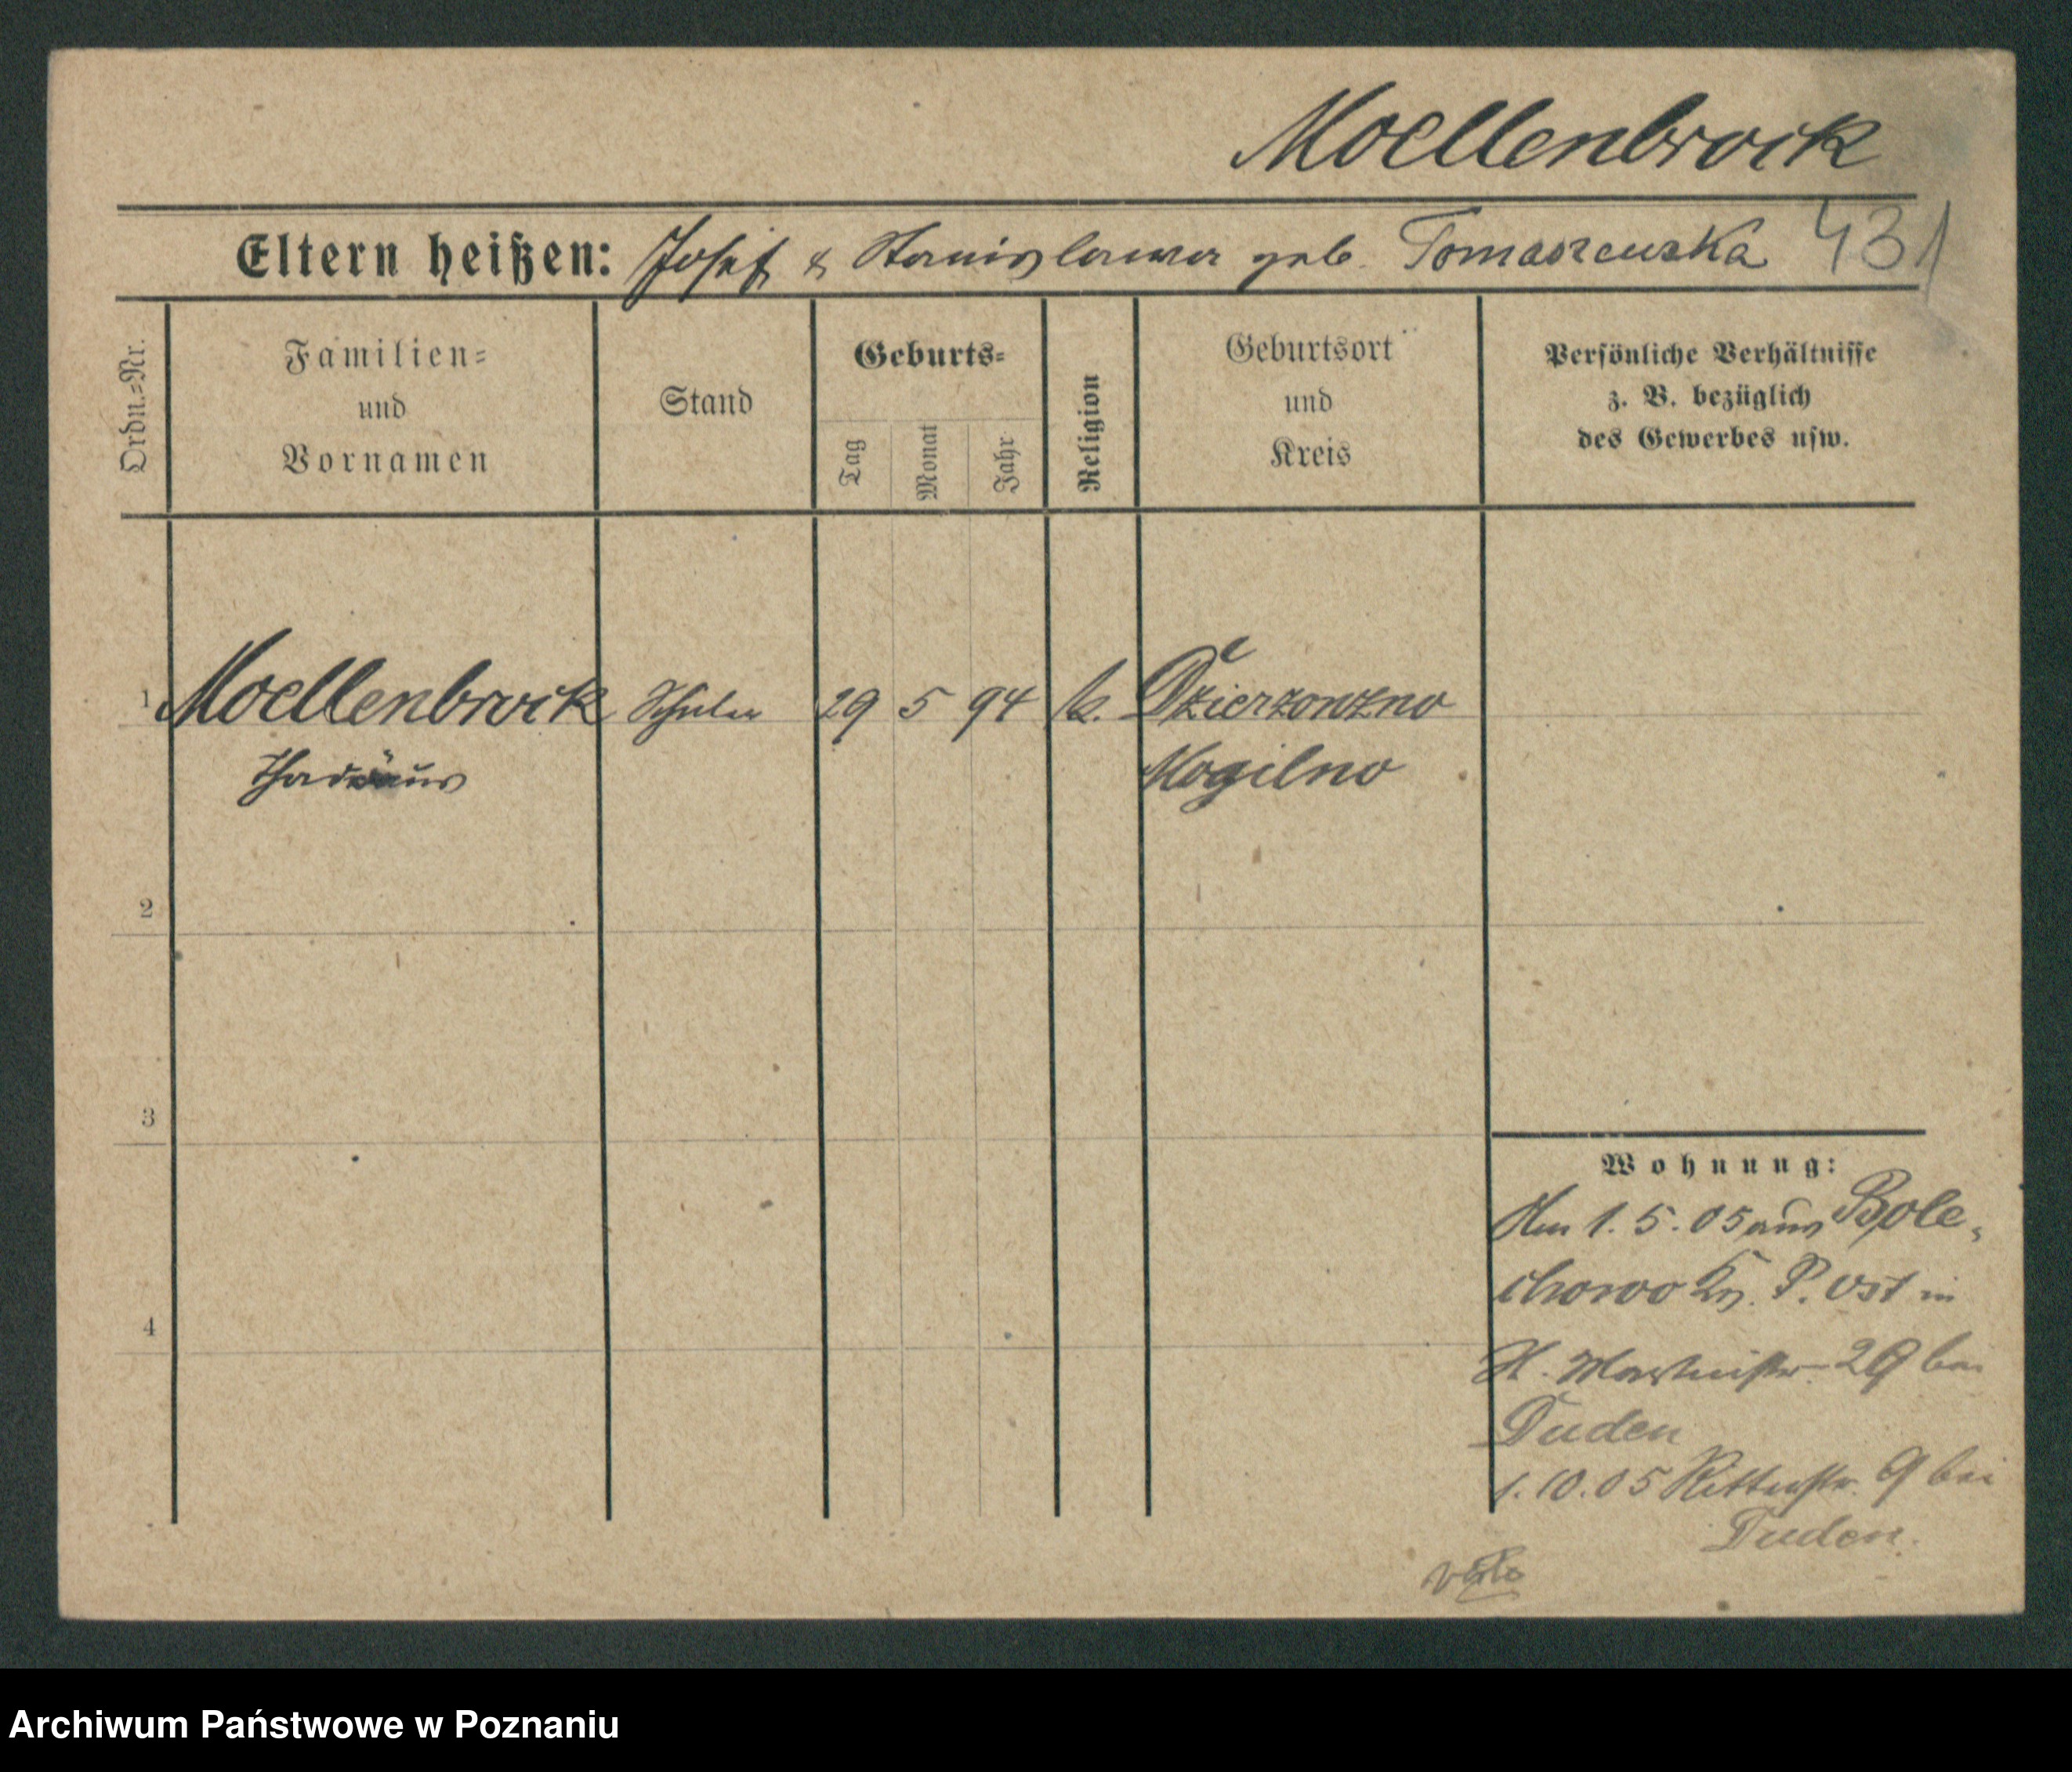 Moellenbrock
Eltern heißen: Josef & Stanislawa geb. Tomaszewska 431
Ordn.=Nr.
Familien=
und
Vornamen
Stand
Geburts=
Tag
Monat
Jahr
Religion
Geburtsort
und
Kreis
Persönliche Verhältnisse
z. B. bezüglich
des Gewerbes usw.
1 Moellenbrock Schüler 29 5 94 k. Dzierzonzno
Thadäus Mogilno
2
3
4
Wohnung:
Am 1. 5. 05 aus Bole-
chowo Kr. P. Ost in
Martinstr. 29 bei
Duden
1. 10. 05 Ritterstr. 9 bei
Duden.
Archiwum Państwowe w Poznaniu